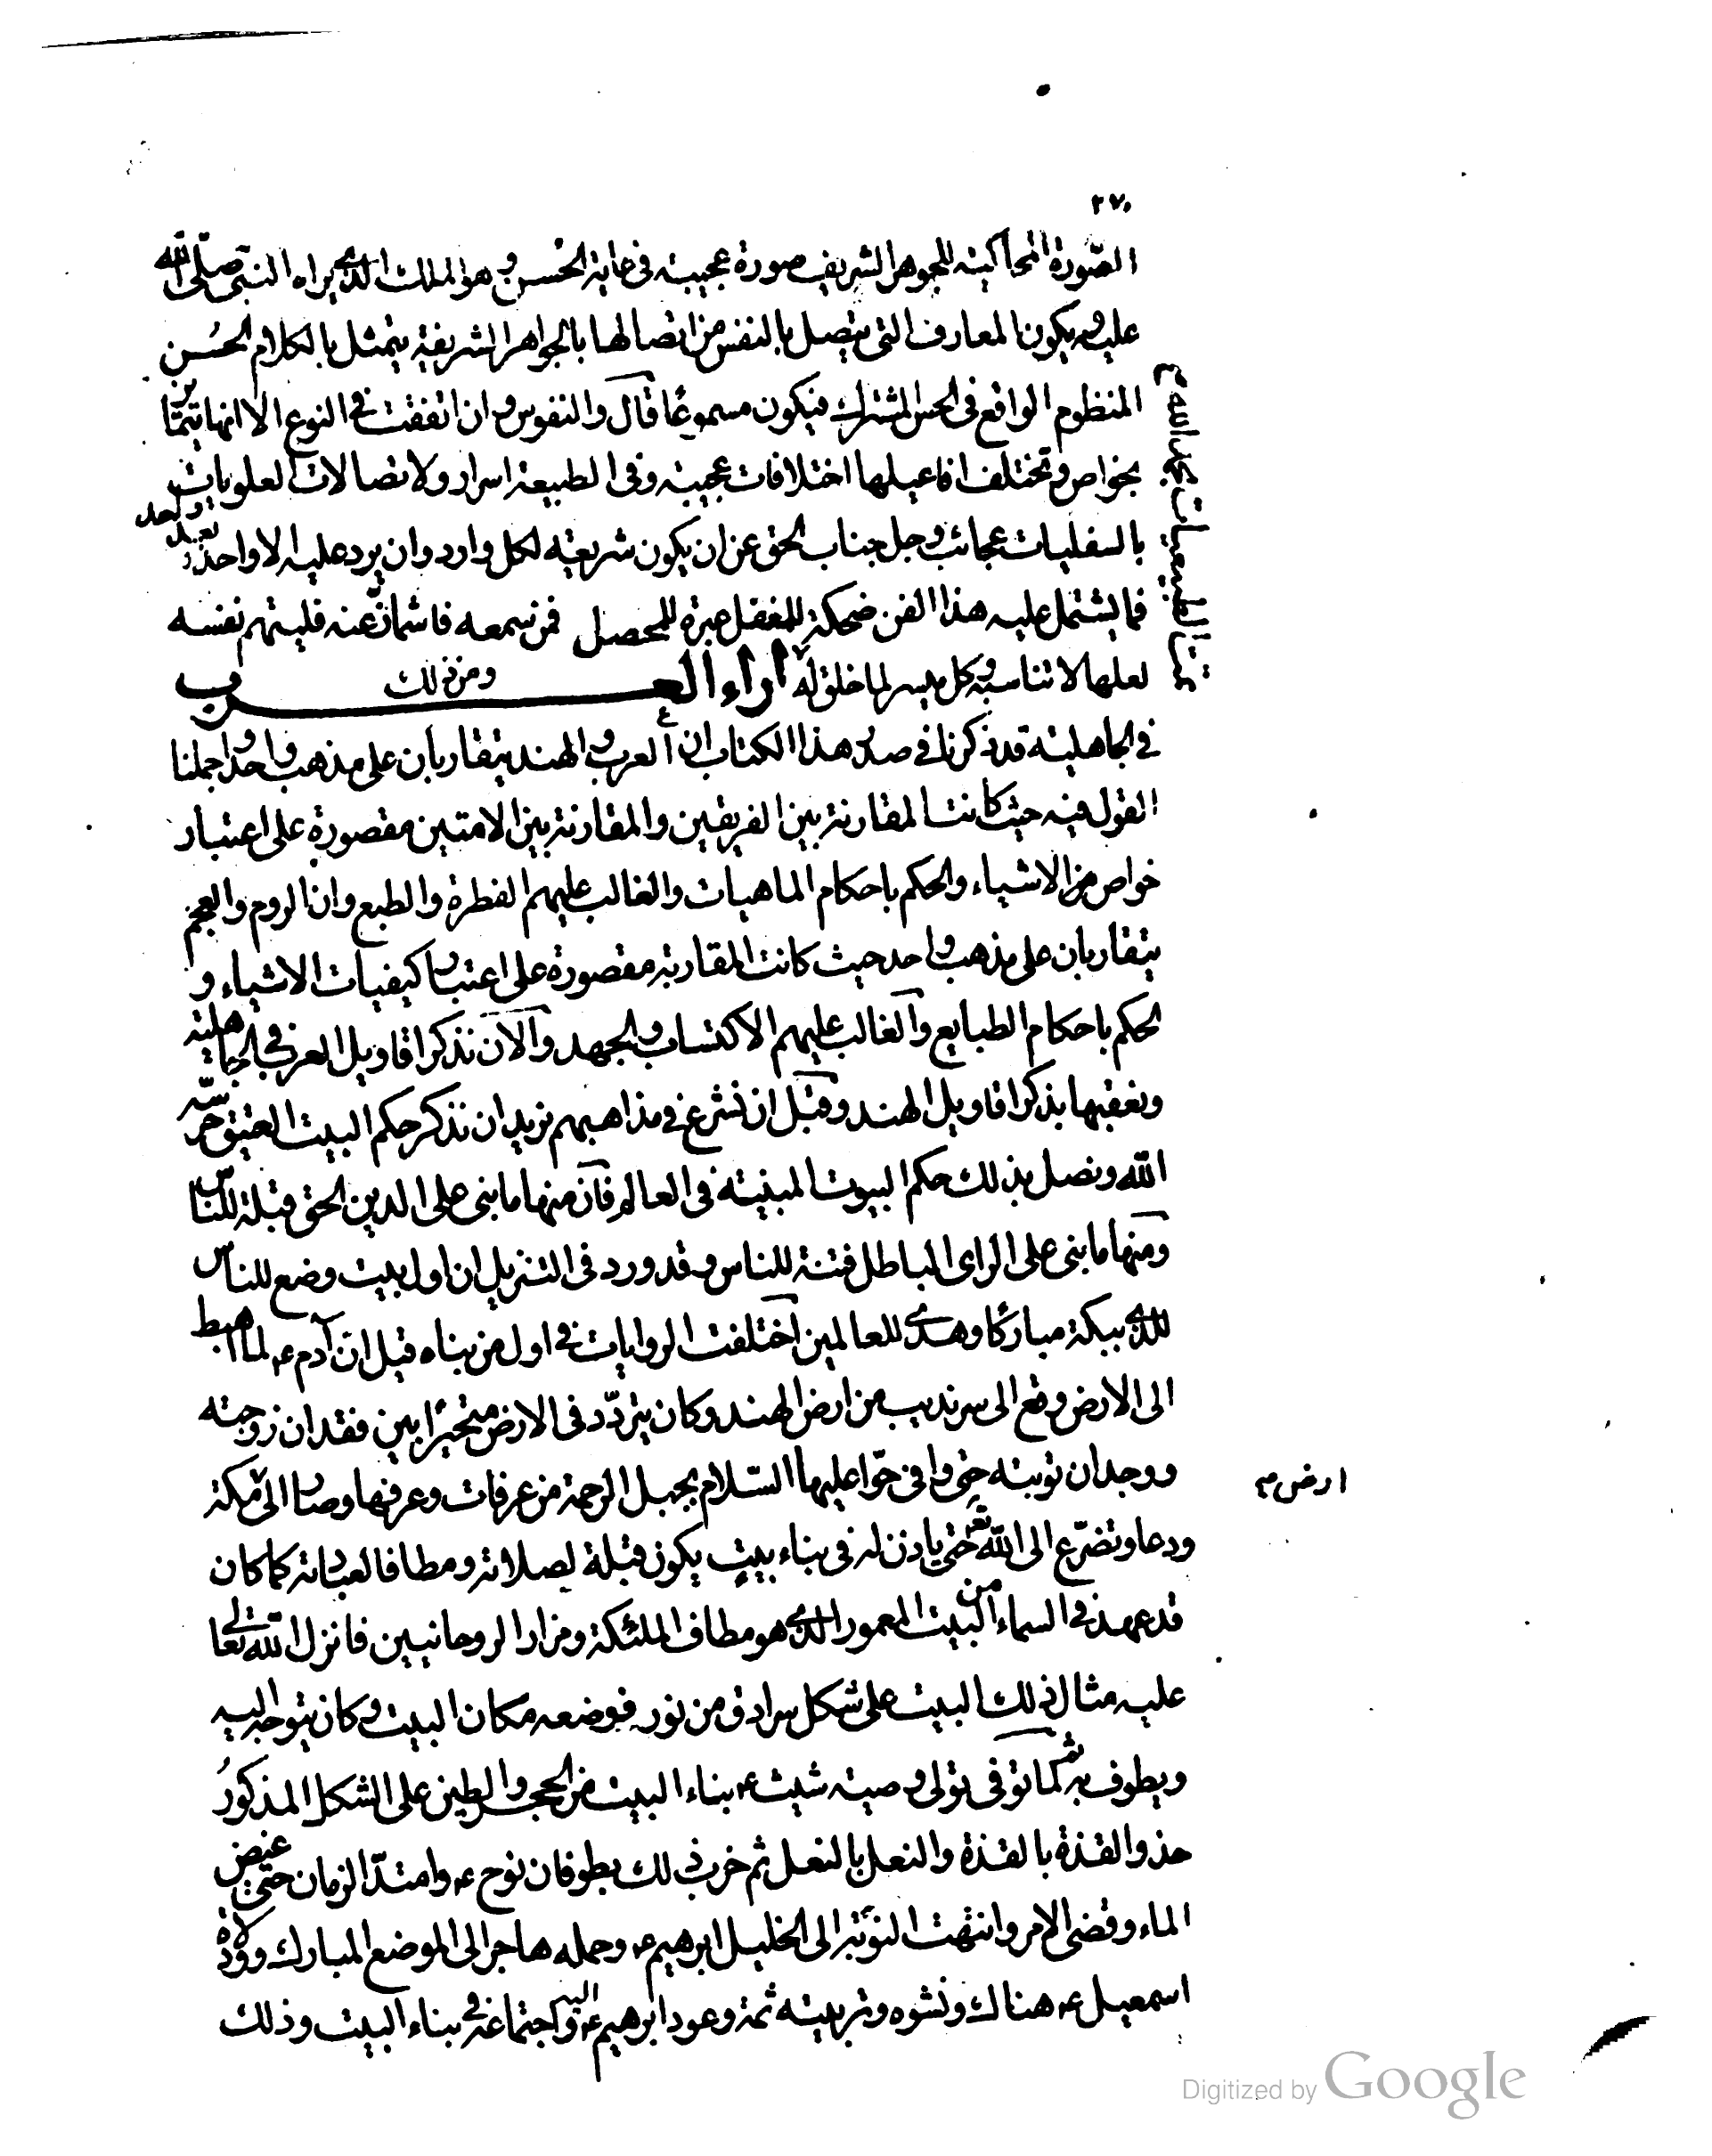 ٢٧٠
الصّورة المحاكية للجوهر الشريف صورة عجيبة فى غاية الحُسن و هو الملك الذى يراه النبى صلّى الله
عليه و يكون المعارف التى يتصل بالنفس من اتصالها بالجواهر الشريفة يتمثل بالكلام الحُسن
المنظوم الواقع فى الحس المشترك فيكون مسموعًا قال والنفوس و ان اتفقت فى النوع الا انها يتمتاز
بخواص و تختلف افاعيلها اختلافات عجيبة و فى الطبيعة اسرار ولاتصالات العلويات
بالسفليات عجائب و جل جناب الحق عن ان يكون شريعة لكل وارد وان يرد عليه الا واحد بعد واحد
فما يشتمل عليه هذا الفن ضحكة للمغفل عبرة للمحصل فمن سمعه فاشمازّ عنه فليتهم نفسه
لعلها لا تناسبه و كل ميسر لما خلق له آراء العرب ومن ذلك
تمت الطبيعيات بحمد الله
فى الجاهلية قد ذكرنا فى صدر هذا الكتاب ان العرب و الهند يتقاربان على مذهب واحد و اجملنا
القول فيه حيث كانت المقارنة بين الفريقين والمقارنة بين الامتين مقصورة على اعتبار
خواص من الاشياء والحكم باحكام الماهيات والغالب عليهم الفطرة والطبع وان الروم والعجم
يتقاربان على مذهب واحد حيث كانت المقاربة مقصورة على اعتبار كيفيات الاشياء و
الحكم باحكام الطبايع والغالب عليهم الاكتساب والجهد والآن نذكر اقاويل العرب فى الجاهلية
ونعقبها بذكر اقاويل الهند و قبل ان نشرع فى مذاهبهم نريد ان نذكر حكم البيت العتيق حرسه
الله ونصل بذلك حكم البيوت المبنية فى العالم فان منها ما بنى على الدين الحق قبلة للنّاس
ومنها ما بنى على الراى الباطل فتنة للناس و قد ورد فى التنزيل ان اول بيت وضع للناس
للذى ببكة مباركًا وهدى للعالمين اختلفت الروايات فى اول من بناه قيل ان آدم ع لما اهبط
الى الارض وقع الى سرنديب من ارض الهند و كان يتردّد فى الارض متحيرًا بين فقدان زوجته
ووجدان توبته حتى وافى حوّا عليها السّلام بجبل الرحمة من عرفات وعرفها وصار الى مكة
ارض
ودعا وتضرّع الى الله تع حتى ياذن له فى بناء بيتٍ يكون قبلة لصلاته و مطافا لعبادته كما كان
قد عهد فى السماء من البيت المعمور الذى هو مطاف الملئكة ومزار الروحانيين فانزل الله تعالى
عليه مثال ذلك البيت على شكل سرادق من نور فوضعه مكان البيت و كان يتوجه اليه
ويطوف به ثم لما توفى تولى وصيه شيث ع بناء البيت من الحجر والطين على الشكل المذكورُ
حذو القذة بالقذة والنعل بالنعل ثم خرب ذلك بطوفان نوح ع وامتدّ الزمان حتى غيض
الماء وقضى الامر وانتهت النوبة الى الخليل ابرهيم ع وحمله هاجر الى الموضع المبارك وولادة
اسمعيل ع هناك ونشوه وتربيته ثمة وعود ابرهيم ع اليه واجتماعه فى بناء البيت وذلك
Digitized by Google